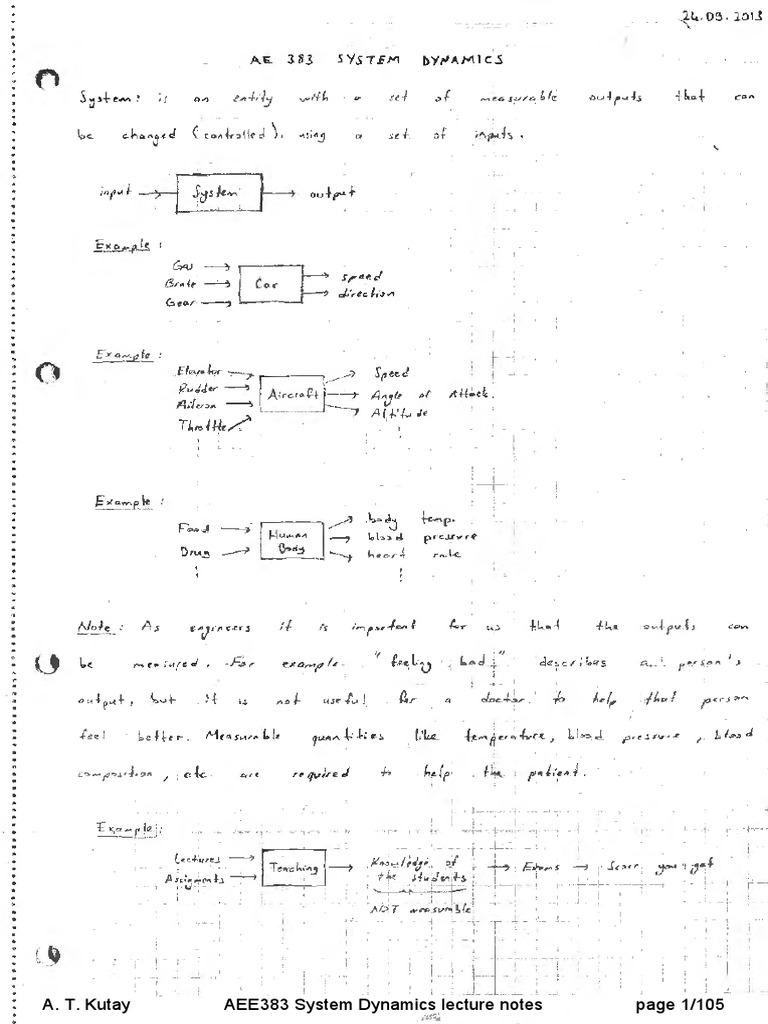 24.09.2013
AE 383 SYSTEM DYNAMICS
System: is an entity with a set of measurable outputs that can
be changed (controlled), using a set of inputs.
input System output
Example:
Gas
Brake Car speed
Gear direction
Example:
Elevator Speed
Rudder Aircraft Angle of Attack.
Aileron Altitude
Throttle
Example:
Food Human body temp.
Drug Body blood pressure
heart rate
Note: As engineers it is important for us that the outputs can
be measured. For example "feeling bad" describes a person's
output, but it is not useful for a doctor to help that person
feel better. Measurable quantities like temperature, blood pressure, blood
composition, etc. are required to help the patient.
Example:
Lectures Teaching Knowledge of Exams Score you get
Assigments the students
NOT measurable
A. T. Kutay AEE383 System Dynamics lecture notes page 1/105